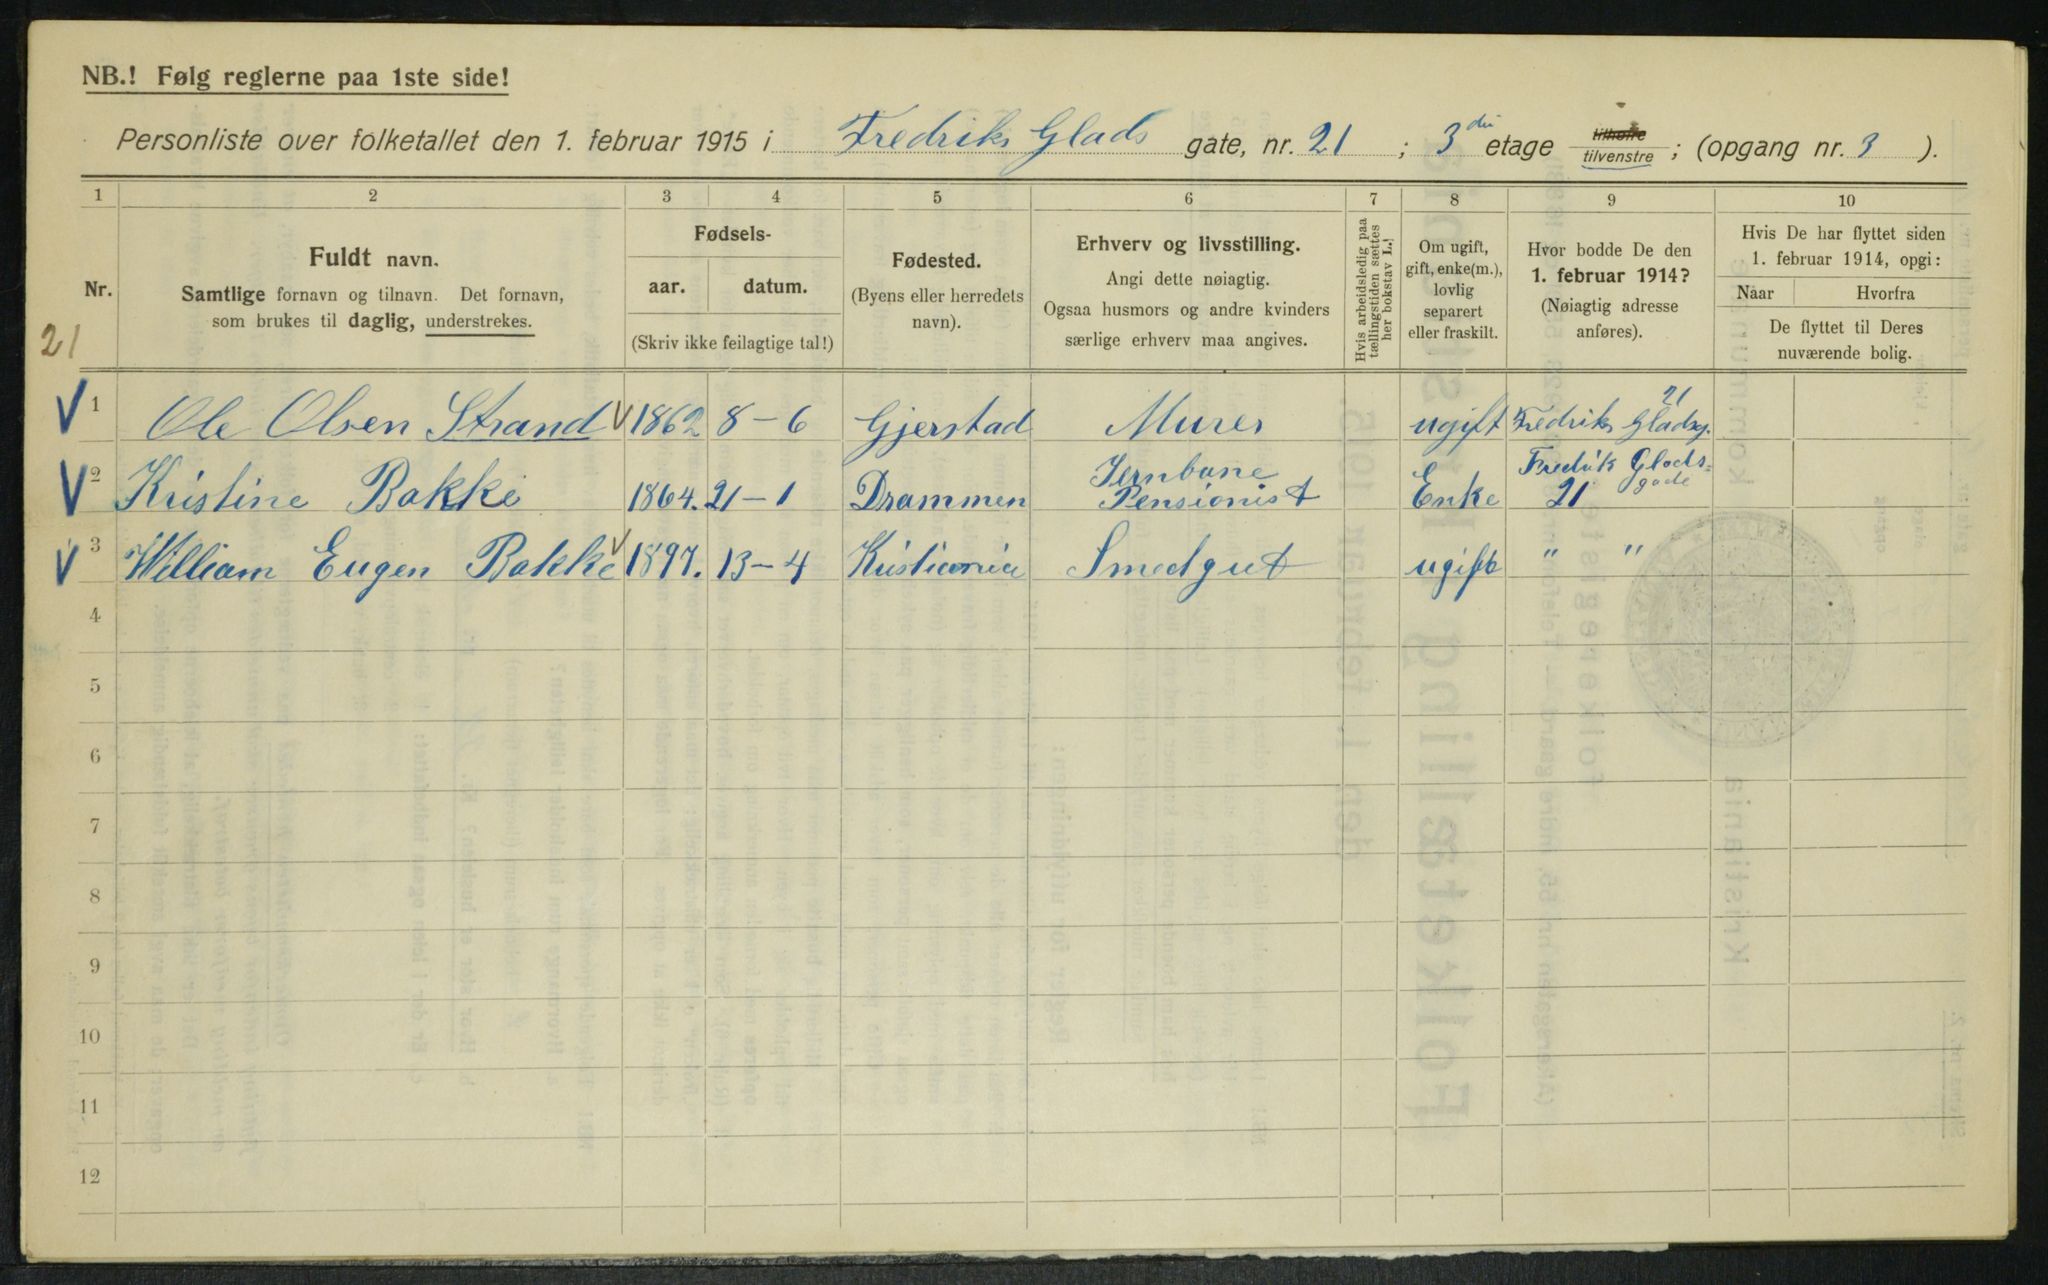 NB.! Følg reglerne paa 1ste side!
Personliste over folketallet den 1. februar 1915 i Fredriks Glads gate, nr. 21 ; 3die etage tilhøire tilvenstre ; (opgang nr. 3 ).
1 2 3 4 5 6 7 8 9 10
Nr.
Fuldt navn.
Samtlige fornavn og tilnavn. Det fornavn,
som brukes til daglig, understrekes.
Fødsels-
aar. datum.
(Skriv ikke feilagtige tal!)
Fødested.
(Byens eller herredets
navn).
Erhverv og livsstilling.
Angi dette nøiagtig.
Ogsaa husmors og andre kvinders
særlige erhverv maa angives.
Hvis arbeidsledig paa
tællingstiden sættes
her bokstav L.!
Om ugift,
gift, enke(m.),
lovlig
separert
eller fraskilt.
Hvor bodde De den
1. februar 1914?
(Nøiagtig adresse
anføres).
Hvis De har flyttet siden
1. februar 1914, opgi:
Naar Hvorfra
De flyttet til Deres
nuværende bolig.
21
V 1 Ole Olsen Strand V 1862 8-6 Gjerstad Murer ugift Fredriks Gladsg. 21
V 2 Kristine Bakke 1864. 21-1 Drammen Jernbane Pensionist Enke Fredrik Glads= gade 21
V 3 William Eugen Bakke V 1897. 13-4 Kristiania Smedgut ugift " "
4
5
6
7
8
9
10
11
12